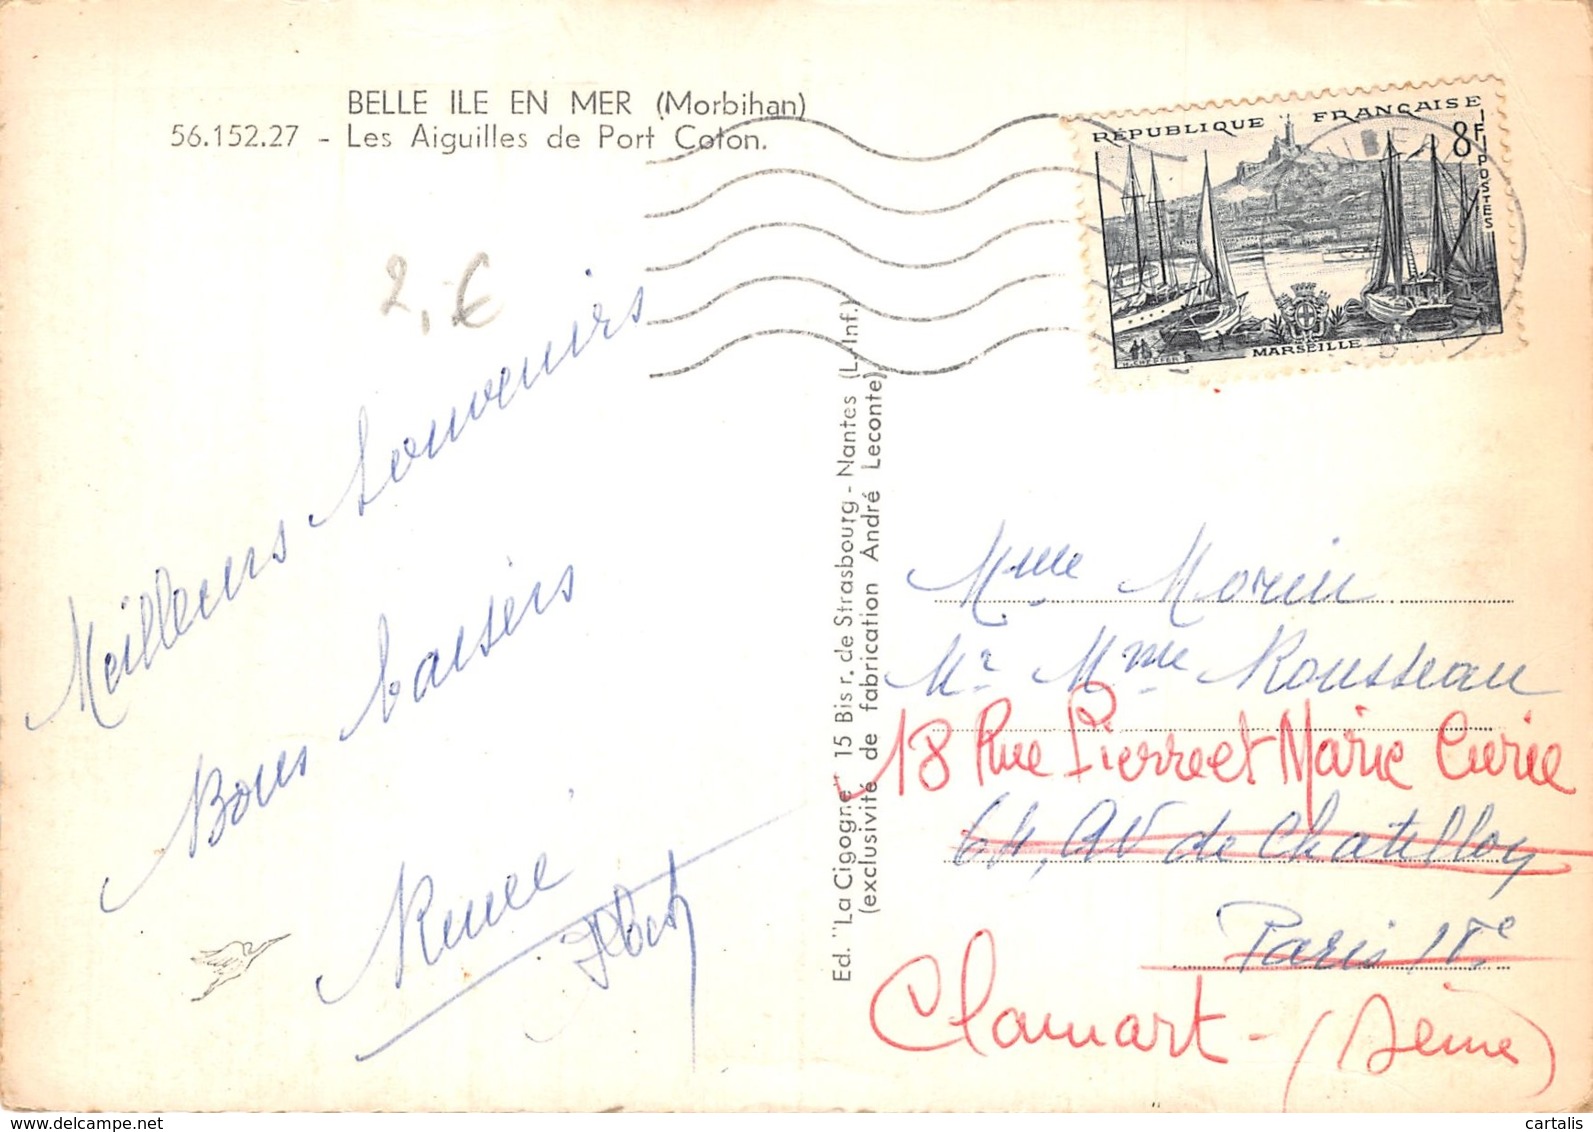 BELLE ILE EN MER (Morbihan)
56.152.27 - Les Aiguilles de Port Coton.
2,-€
Meilleurs Souvenirs
Bons baisers
Renée
RÉPUBLIQUE FRANÇAISE
8F
POSTES
MARSEILLE
Ed. "La Cigogne" 15 Bis r. de Strasbourg - Nantes (L.-Inf.)
(exclusivité de fabrication André Leconte)
Mme Morin
Mr Mme Rousseau
18 Rue Pierre et Marie Curie
64, av de Chatillon
Paris 14e
Clamart - (Seine)
cartalis
delcampe.net